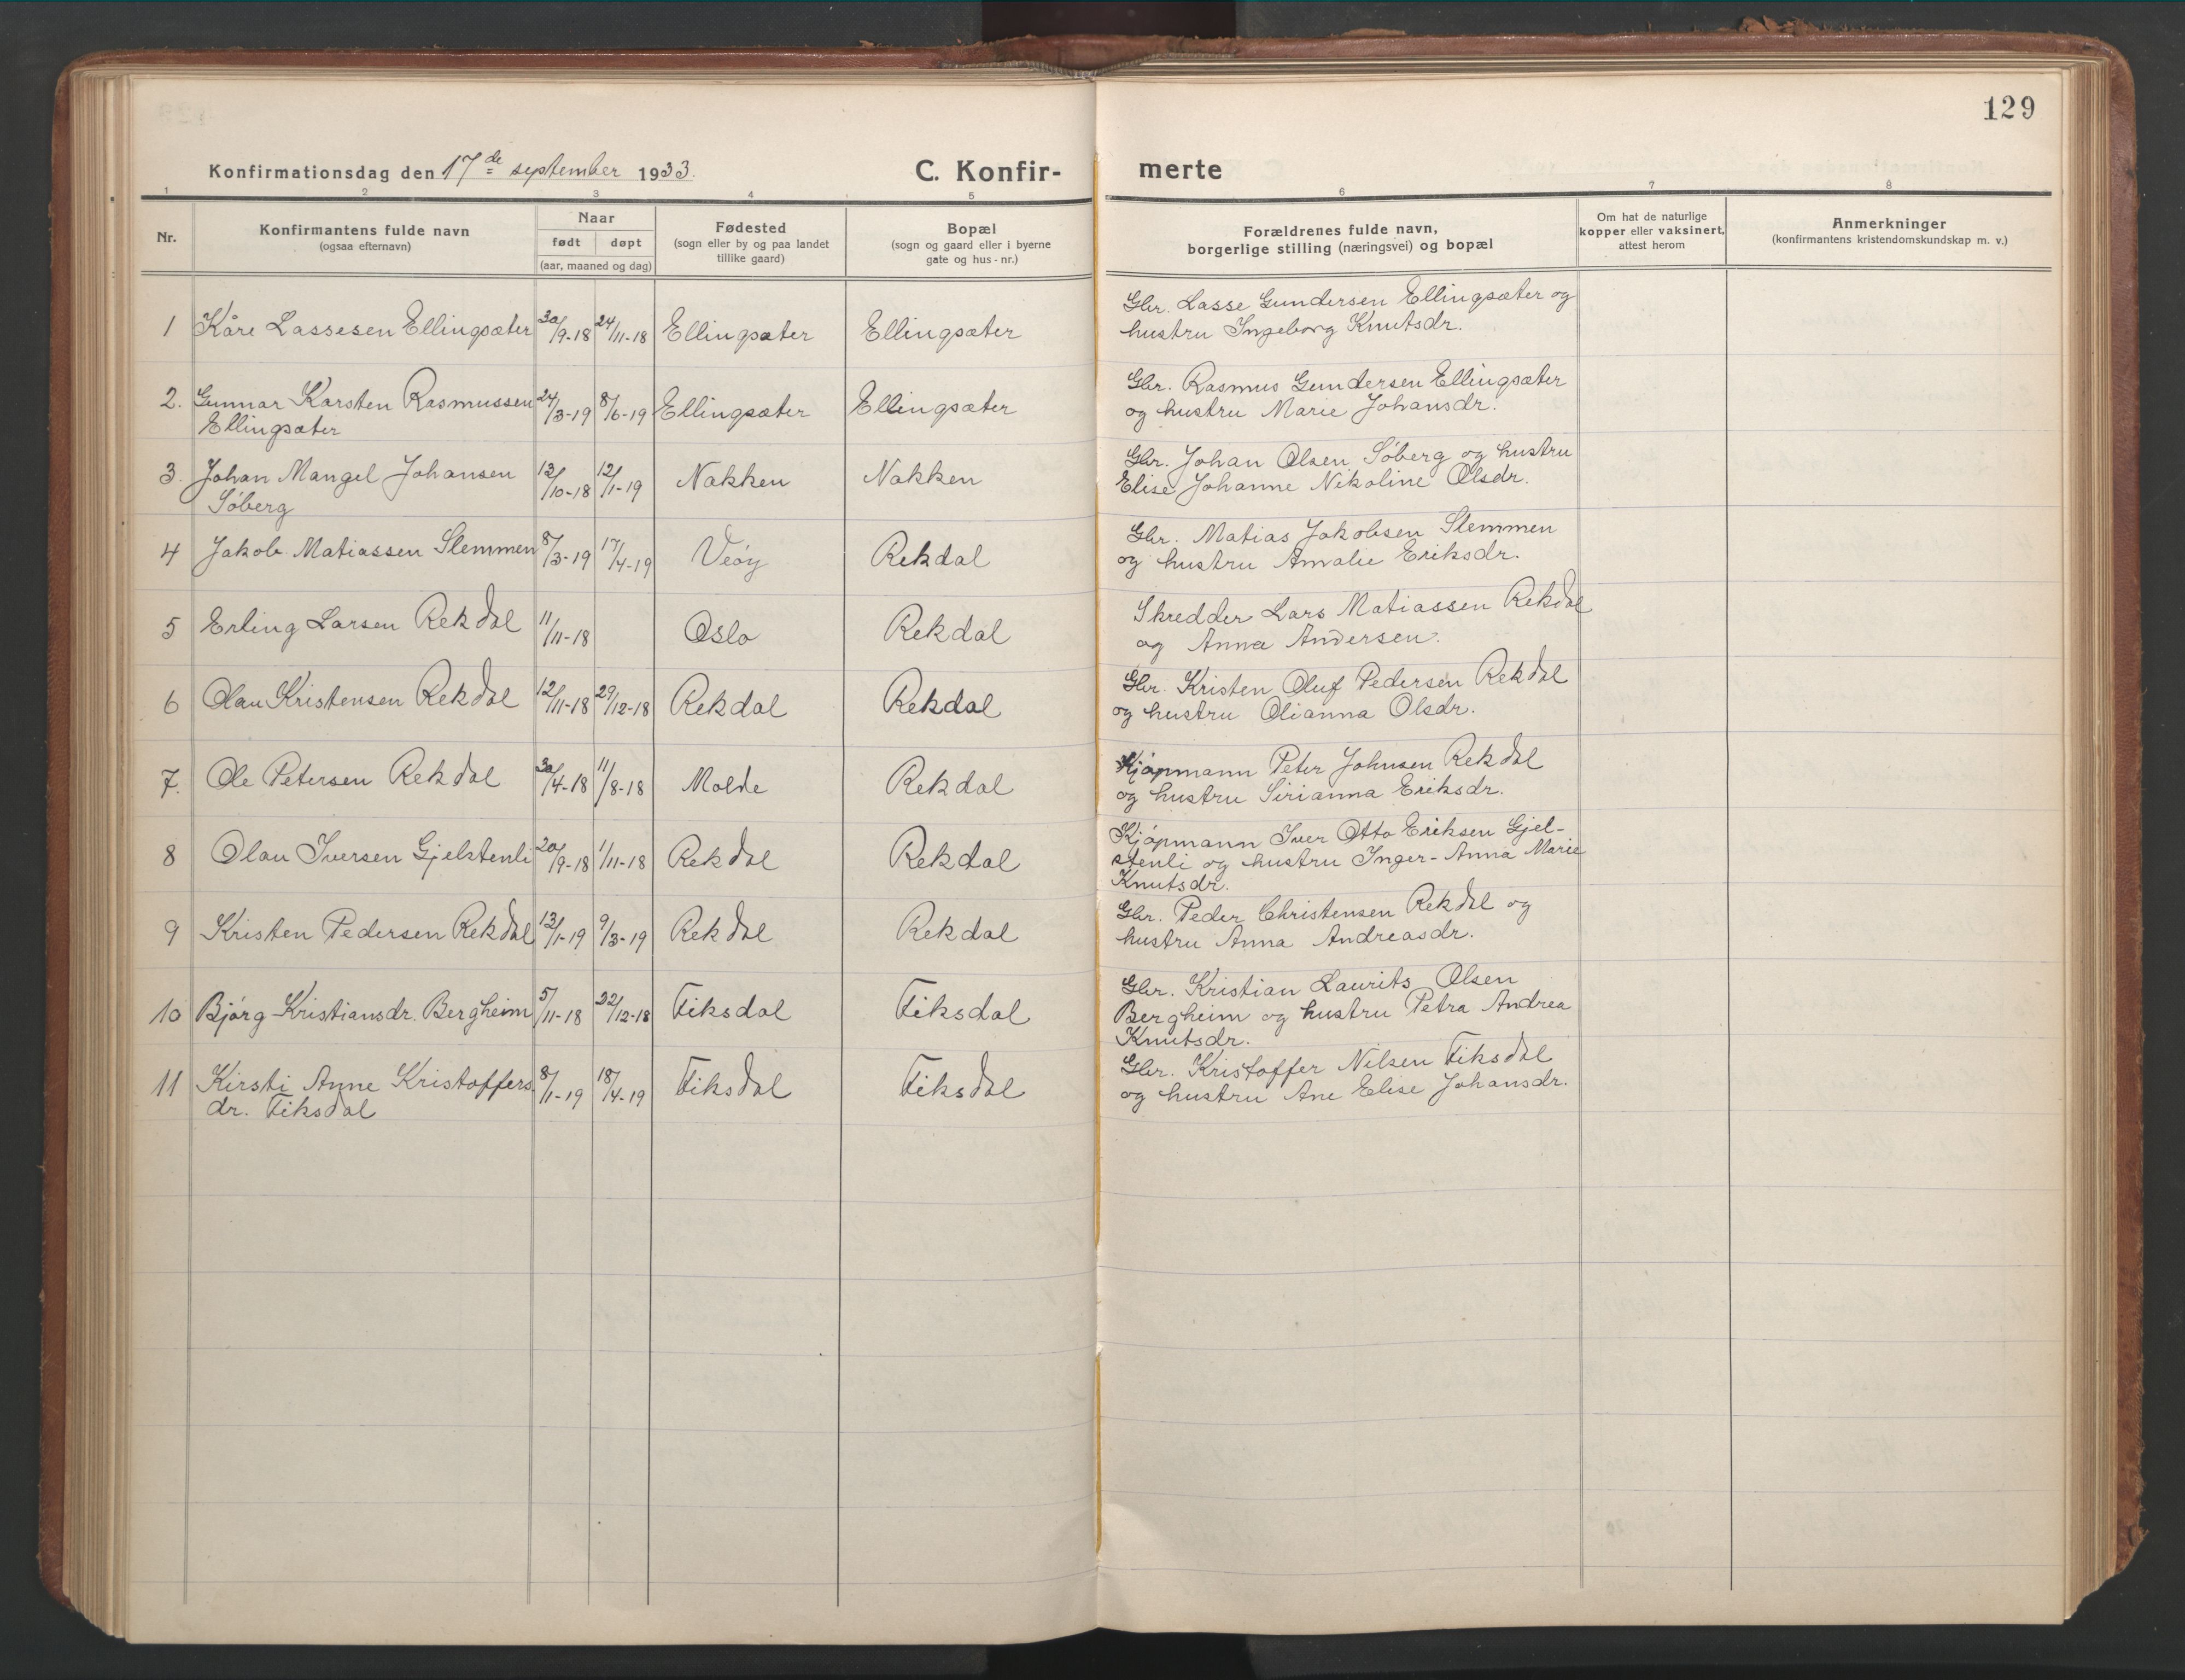 129
Konfirmationsdag den 17de september 1933.
C. Konfir-
merte
1 2 3 4 5 6 7 8
Nr.
Konfirmantens fulde navn
(ogsaa efternavn)
Naar
født døpt
(aar, maaned og dag)
Fødested
(sogn eller by og paa landet
tillike gaard)
Bopæl
(sogn og gaard eller i byerne
gate og hus-nr.)
Forældrenes fulde navn,
borgerlige stilling (næringsvei) og bopæl
Om hat de naturlige
kopper eller vaksinert,
attest herom
Anmerkninger
(konfirmantens kristendomskundskap m. v.)
1 Kåre Lassesen Ellingsæter 30/9-18 24/11-18 Ellingsæter Ellingsæter
Gbr. Lasse Gundersen Ellingsæter og
hustru Ingeborg Knutsdr.
2. Gunnar Karsten Rasmussen 24/3-19 8/6-19 Ellingsæter Ellingsæter
Ellingsæter
Gbr. Rasmus Gundersen Ellingsæter
og hustru Marie Johansdr.
3. Johan Mangel Johansen 13/10-18 12/1-19 Nakken Nakken
Söberg
Gbr. Johan Olsen Söberg og hustru
Elise Johanne Nikoline Olsdr.
4 Jakob Matiassen Slemmen 8/3-19 17/4-19 Veöy Rekdal
Gbr. Matias Jakobsen Slemmen
og hustru Amalie Eriksdr.
5 Erling Larsen Rekdal 11/11-18 Oslo Rekdal
Skredder Lars Matiassen Rekdal
og Anna Andersen.
6 Olau Kristensen Rekdal 12/11-18 29/12-18 Rekdal Rekdal
Gbr. Kristen Oluf Pedersen Rekdal
og hustru Olianna Olsdr.
7. Ole Petersen Rekdal 30/4-18 11/8-18 Molde Rekdal
Kjöpmann Peter Johnsen Rekdal
og hustru Sirianna Eriksdr.
8 Olau Iversen Gjelstenli 20/9-18 1/11-18 Rekdal Rekdal
Kjöpmann Iver Otto Eriksen Gjel-
stenli og hustru Inger-Anna Marie
Knutsdr.
9 Kristen Pedersen Rekdal 13/1-19 9/3-19 Rekdal Rekdal
Gbr. Peder Christensen Rekdal og
hustru Anna Andreasdr.
10 Björg Kristiansdr. Bergheim 5/11-18 22/12-18 Fiksdal Fiksdal
Gbr. Kristian Laurits Olsen
Bergheim og hustru Petra Andrea
Knutsdr.
11 Kirsti Anne Kristoffers 8/1-19 18/4-19 Fiksdal Fiksdal
dr. Fiksdal
Gbr. Kristoffer Nilsen Fiksdal
og hustru Ane Elise Johansdr.